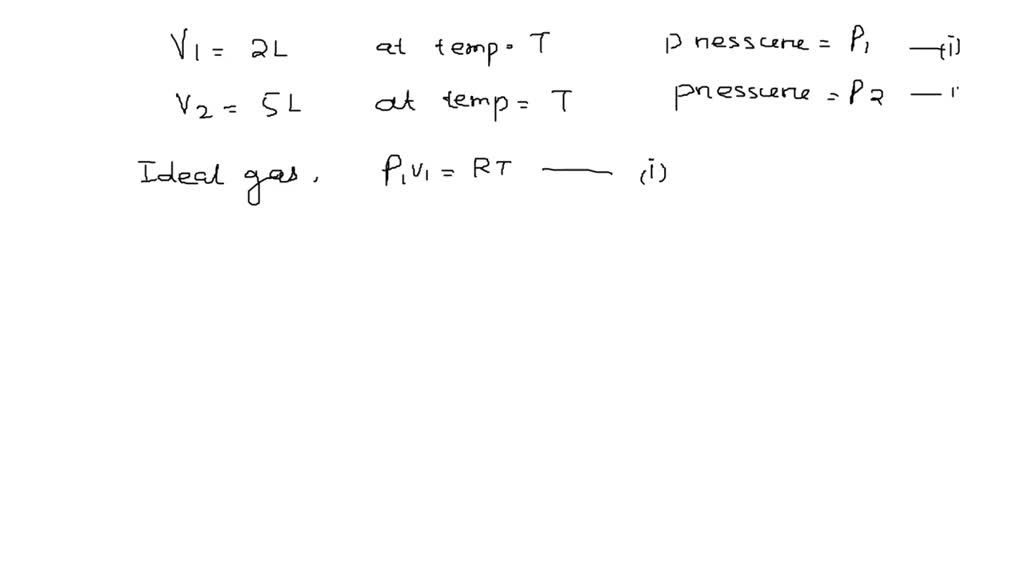 V1 = 2L at temp = T pressure = P1 —(i)
V2 = 5L at temp = T pressure = P2 —
Ideal gas, P1V1 = RT — (i)